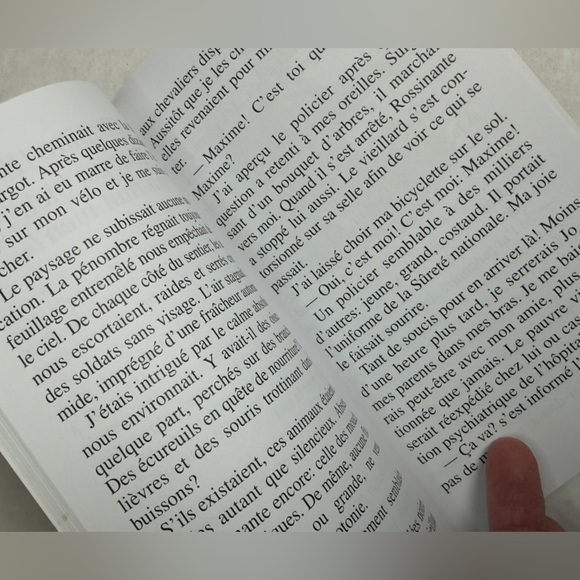 nte cheminait avec
rgot. Après quelques
j'en ai eu marre de faire
sur mon vélo et je me
cher.
Le paysage ne subissait aucune
cation. La pénombre régnait
feuillage entremêlé nous empêchait
le ciel. De chaque côté du sentier,
nous escortaient, raides et serrés
des soldats sans visage. L'air
mide, imprégné d'une fraîcheur
J'étais intrigué par le calme
nous environnait. Y avait-il des
quelque part, perchés sur des
Des écureuils en quête de nourriture?
lièvres et des souris trottinant
buissons?
S'ils existaient, ces animaux
autant que silencieux.
ante encore: celle des
ques. De même, aucune
ou grande, ne
otonie.
ment
aux chevaliers
Aussitôt que je les
elles revenaient pour
— Maxime! C'est toi
Maxime?
J'ai aperçu le policier après
question a retenti à mes oreilles.
sant d'un bouquet d'arbres, il marcha
vers moi. Quand il s'est arrêté, Rossinante
a stoppé lui aussi. Le vieillard s'est con-
torsionné sur sa selle afin de voir ce qui se
passait.
J'ai laissé choir ma bicyclette sur le sol.
— Oui, c'est moi! C'est moi: Maxime!
Un policier semblable à des milliers
d'autres: jeune, grand, costaud. Il portait
l'uniforme de la Sûreté nationale. Ma joie
le faisait sourire.
Tant de soucis pour en arriver là! Moins
d'une heure plus tard, je serrerais Jo
mes parents dans mes bras. Je me
rais peut-être avec mon amie, plus
tionnée que jamais. Le pauvre
serait réexpédié chez lui ou
tion psychiatrique de l'hôpital
— Ça va? s'est informé
pas de